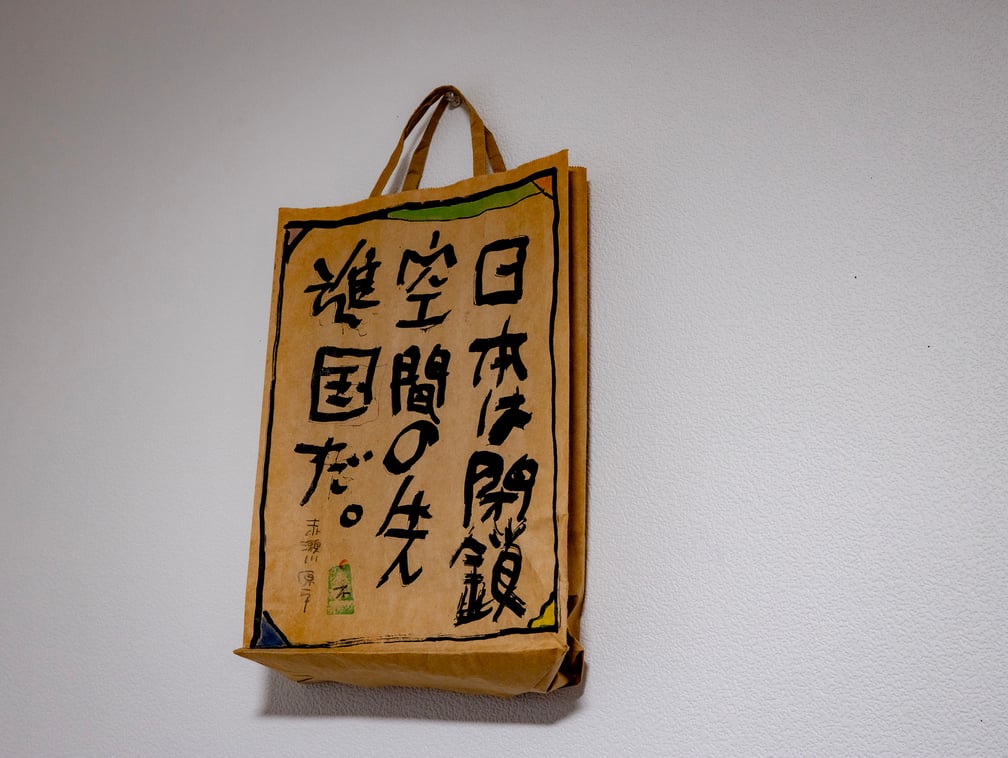 日本は閉鎖
空間の先
進国だ。
赤瀬川
原平